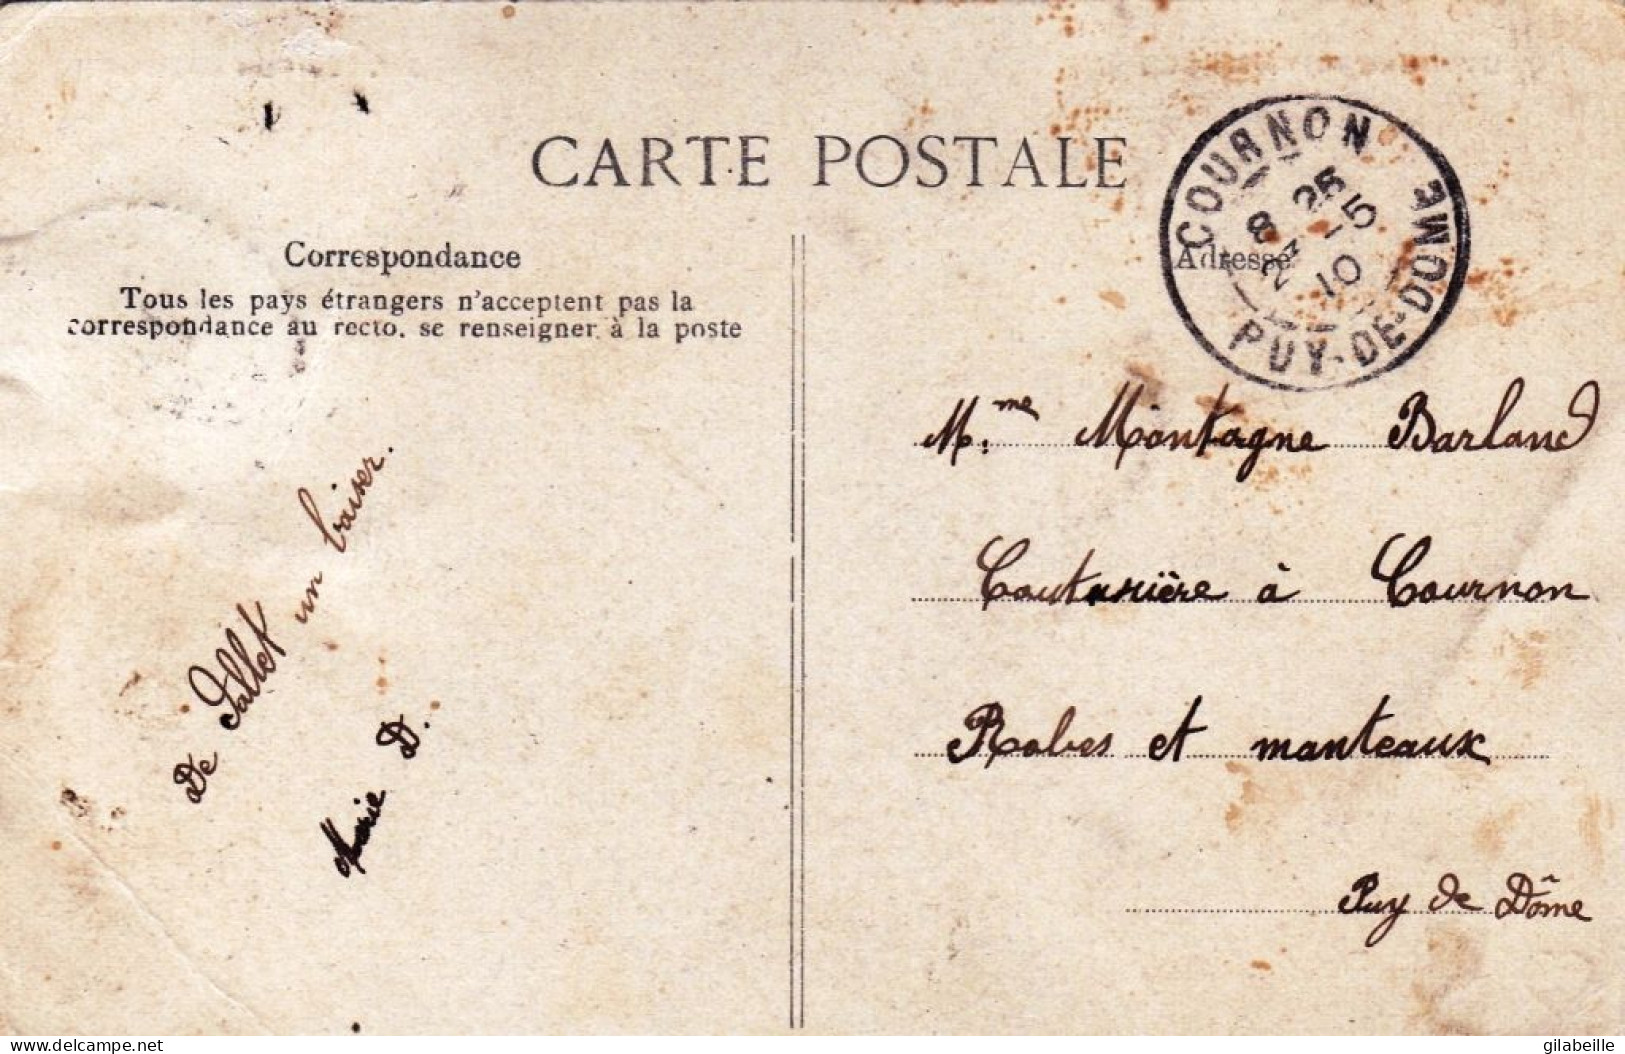 CARTE POSTALE
Correspondance
Tous les pays étrangers n'acceptent pas la
correspondance au recto. se renseigner à la poste
De Sallet un baiser.
Marie D.
Adresse
COURNON
8 25
23 -5
10
PUY-DE-DOME
Mme Montagne Barland
Couturière à Cournon
Robes et manteaux
Puy de Dôme
delcampe.net
gilabeille